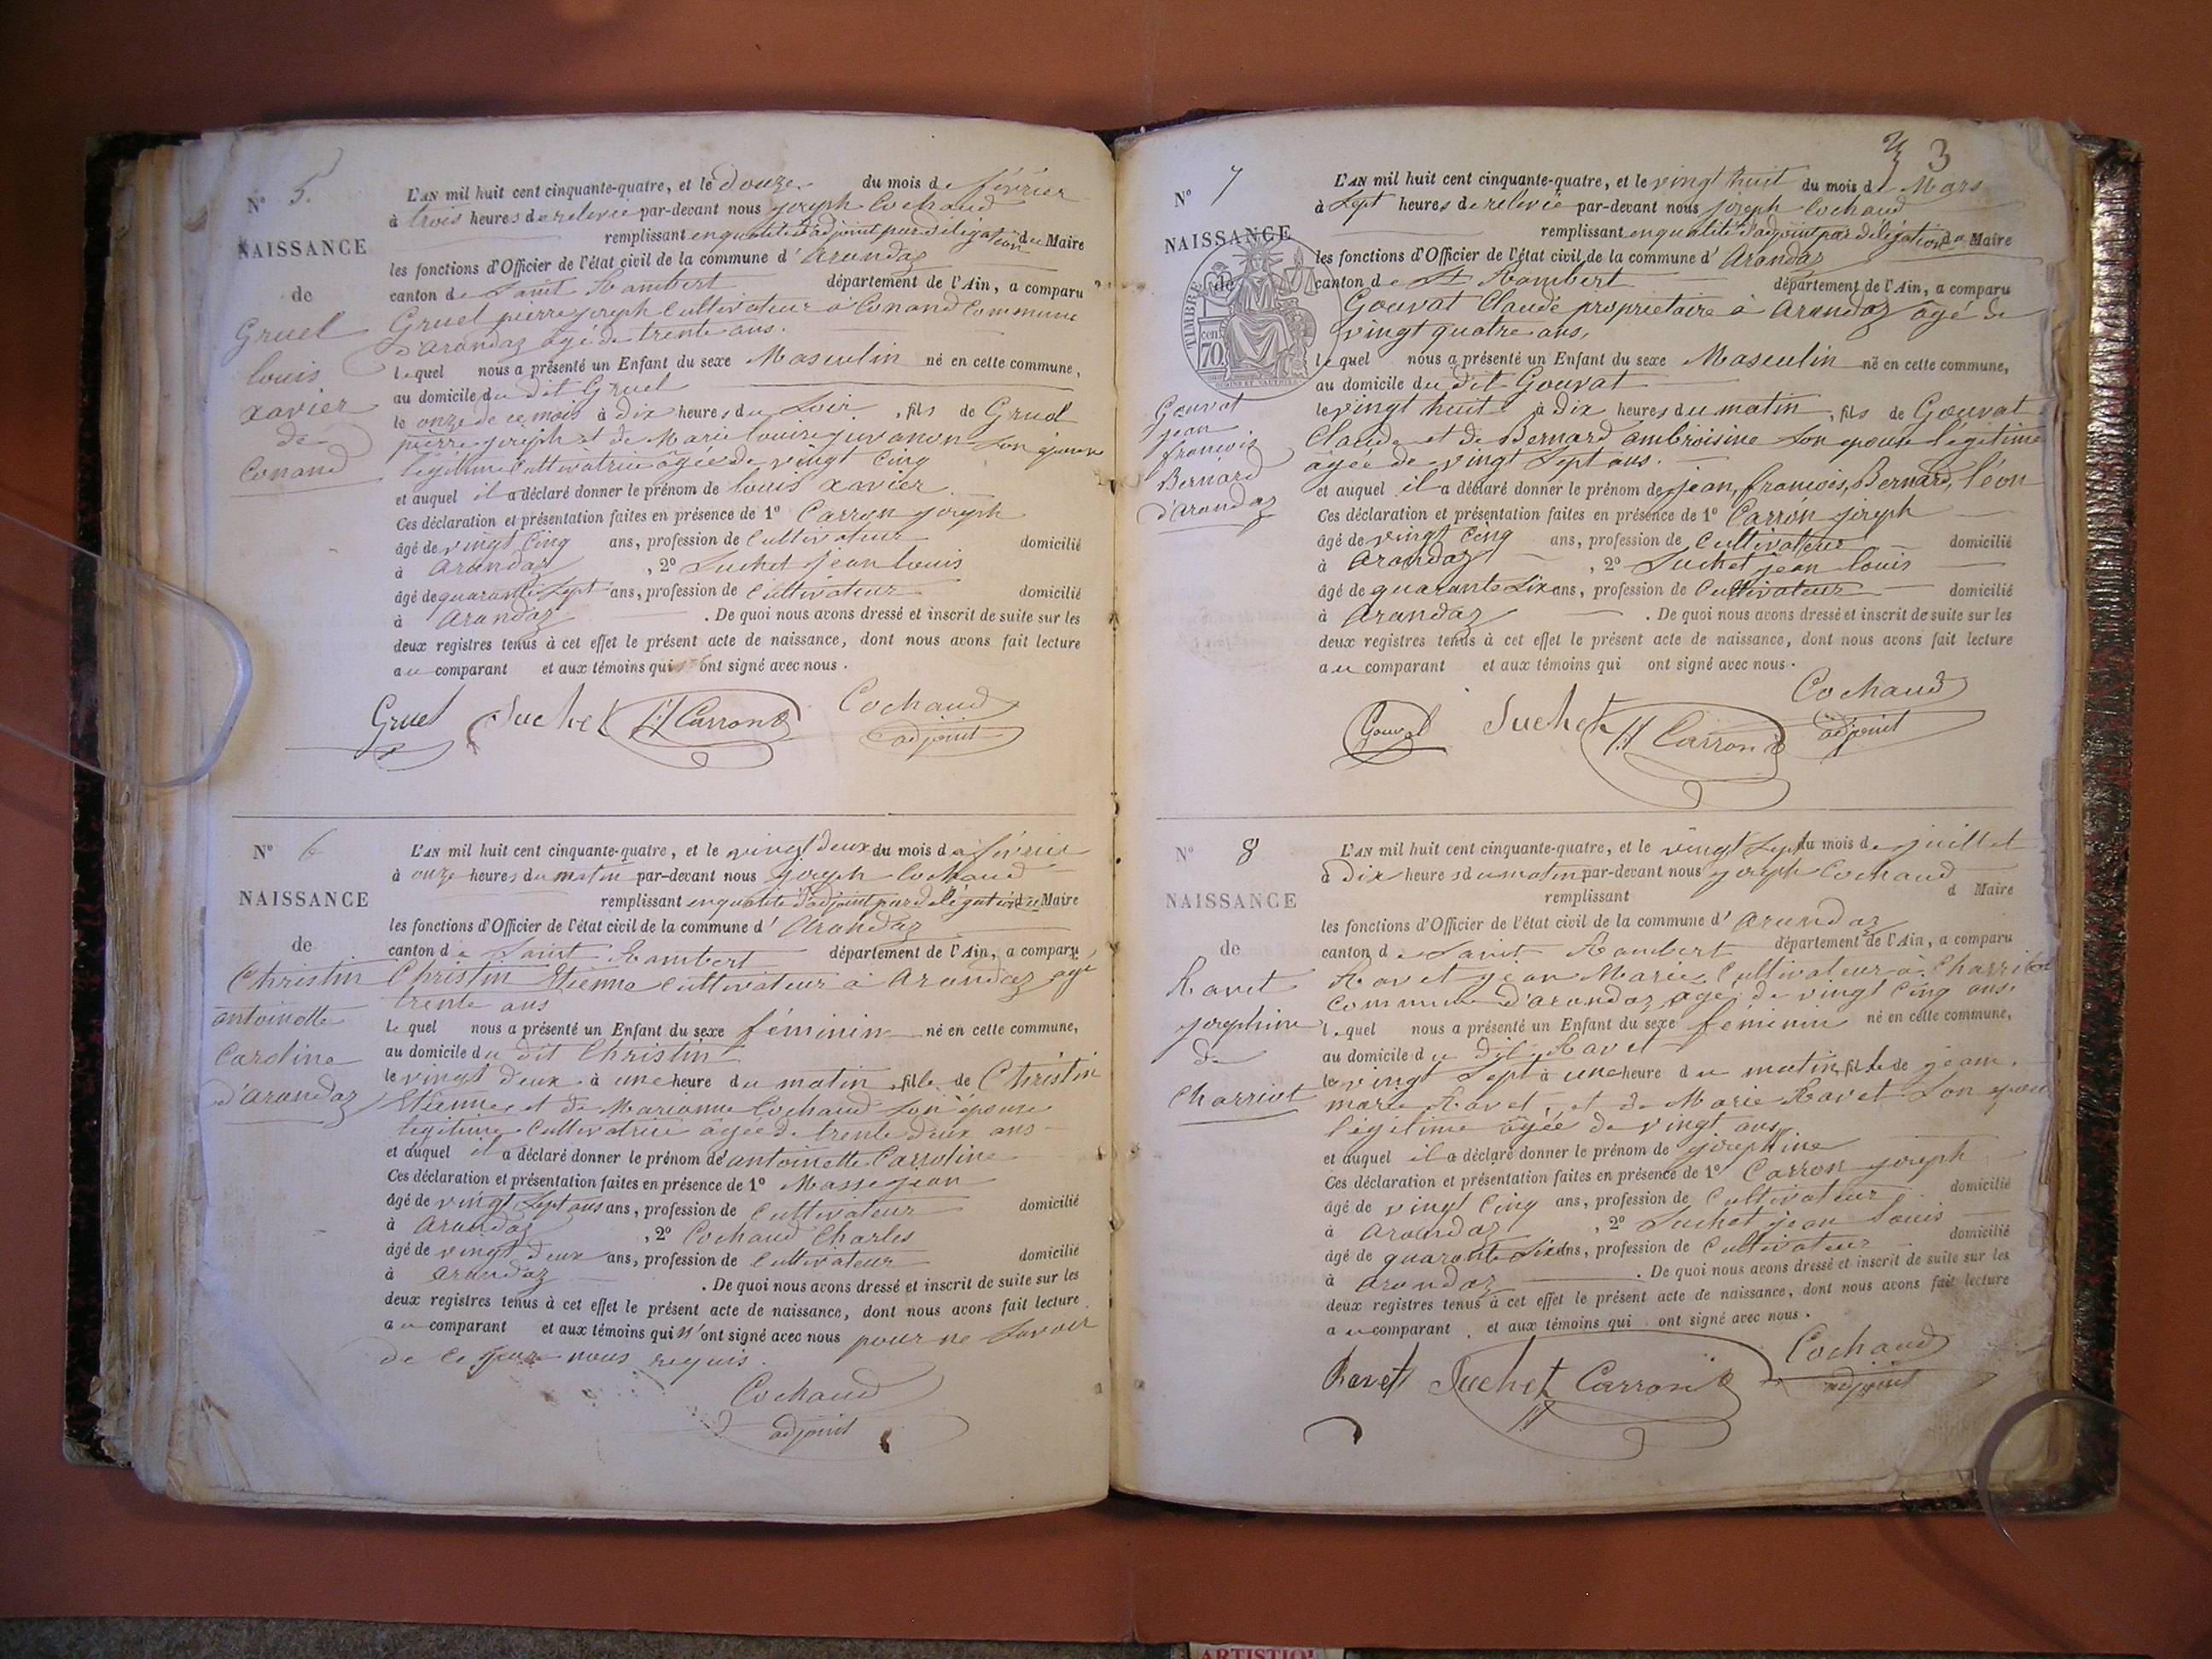 N° 5.
NAISSANCE
de
Gruel
louis
xavier
de
Conand
L'AN mil huit cent cinquante-quatre, et le douze du mois de février
à trois heures de relevée par-devant nous joseph Cochaud
remplissant en qualité d'adjoint par déligation du Maire
les fonctions d'Officier de l'état civil de la commune d'Arandaz
canton de Saint Rambert département de l'Ain, a comparu
Gruel pierre joseph Cultivateur à Conand Commune
d'arandaz âgé de trente ans.
lequel nous a présenté un Enfant du sexe Masculin né en cette commune,
au domicile du dit Gruel
le onze de ce mois à dix heures du Soir, fils de Gruel
pierre joseph et de Marie louise juvanon Son épouse
légitime Cultivatrice âgée de vingt Cinq
et auquel il a déclaré donner le prénom de louis xavier
Ces déclaration et présentation faites en présence de 1° Carron joseph
âgé de vingt Cinq ans, profession de Cultivateur domicilié
à Arandaz, 2° Suchet jean louis
âgé de quarante Sept ans, profession de Cultivateur domicilié
à Arandaz. De quoi nous avons dressé et inscrit de suite sur les
deux registres tenus à cet effet le présent acte de naissance, dont nous avons fait lecture
au comparant et aux témoins qui ont signé avec nous.
Gruel Suchet Carron Cochaud
adjoint
N° 6
NAISSANCE
de
Christin
antoinette
Caroline
d'arandaz
L'AN mil huit cent cinquante-quatre, et le vingt deux du mois de février
à onze heures du matin par-devant nous joseph Cochaud
remplissant en qualité d'adjoint par déligation du Maire
les fonctions d'Officier de l'état civil de la commune d'Arandaz
canton de Saint Rambert département de l'Ain, a comparu
Christin Etienne Cultivateur à Arandaz agé
trente ans
lequel nous a présenté un Enfant du sexe féminin né en cette commune,
au domicile du dit Christin
le vingt deux à une heure du matin, fille de Christin
Etienne et de Marianne Cochaud Son épouse
légitime Cultivatrice âgée de trente deux ans
et auquel il a déclaré donner le prénom de antoinette Carroline
Ces déclaration et présentation faites en présence de 1° Masse jean
âgé de vingt Sept ans ans, profession de Cultivateur domicilié
à Arandaz, 2° Cochaud Charles
âgé de vingt deux ans, profession de Cultivateur domicilié
à Arandaz. De quoi nous avons dressé et inscrit de suite sur les
deux registres tenus à cet effet le présent acte de naissance, dont nous avons fait lecture
au comparant et aux témoins qui n'ont signé avec nous pour ne Savoir
de ce nous requis.
Cochaud
adjoint
3
N° 7
NAISSANCE
de
TIMBRE
70
Gouvat
jean
francois
Bernard
d'arandaz
L'AN mil huit cent cinquante-quatre, et le vingt huit du mois de Mars
à Sept heures de relevée par-devant nous joseph Cochaud
remplissant en qualité d'adjoint par déligation du Maire
les fonctions d'Officier de l'état civil de la commune d'Arandaz
canton de St Rambert département de l'Ain, a comparu
Gouvat Claude proprietaire à Arandaz âgé de
vingt quatre ans,
lequel nous a présenté un Enfant du sexe Masculin né en cette commune,
au domicile du dit Gouvat
le vingt huit à dix heures du matin, fils de Gouvat
Claude et de Bernard ambroisine Son epouse légitime
âgée de vingt Sept ans.
et auquel il a déclaré donner le prénom de jean, francois, Bernard, léon
Ces déclaration et présentation faites en présence de 1° Carron joseph
âgé de vingt Cinq ans, profession de Cultivateur domicilié
à Arandaz, 2° Suchet jean louis
âgé de quarante Six ans, profession de Cultivateur domicilié
à Arandaz. De quoi nous avons dressé et inscrit de suite sur les
deux registres tenus à cet effet le présent acte de naissance, dont nous avons fait lecture
au comparant et aux témoins qui ont signé avec nous.
Gouvat Suchet Carron Cochaud
adjoint
N° 8
NAISSANCE
de
Ravet
josephine
de
Charriot
L'AN mil huit cent cinquante-quatre, et le vingt Sept du mois de juillet
à Dix heures du matin par-devant nous joseph Cochaud
remplissant d Maire
les fonctions d'Officier de l'état civil de la commune d'Arandaz
canton de Saint Rambert département de l'Ain, a comparu
Ravet jean Marie Cultivateur à Charriot
Commune d'arandaz agé de vingt Cinq ans
lequel nous a présenté un Enfant du sexe féminin né en cette commune,
au domicile du dit Ravet
le vingt Sept à une heure du matin, fille de jean
marie Ravet, et de Marie Ravet Son epouse
légitime âgée de vingt ans,
et auquel il a déclaré donner le prénom de josephine
Ces déclaration et présentation faites en présence de 1° Carron joseph
âgé de vingt Cinq ans, profession de Cultivateur domicilié
à Arandaz, 2° Suchet jean louis
âgé de quarante Six ans, profession de Cultivateur domicilié
à Arandaz. De quoi nous avons dressé et inscrit de suite sur les
deux registres tenus à cet effet le présent acte de naissance, dont nous avons fait lecture
au comparant, et aux témoins qui ont signé avec nous.
Ravet Suchet Carron Cochaud
adjoint